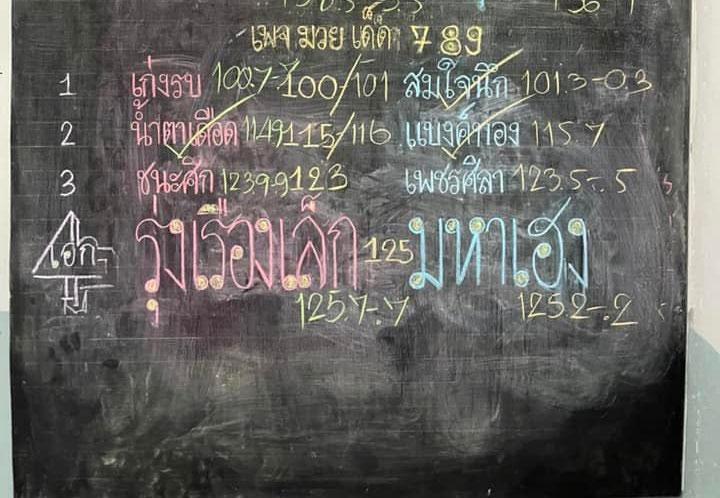 เพจ มวย เด็ด 789
1 เก่งรบ 100.7-.7 100/101 สมใจนึก 101.3-0.3
2 น้ำตาเดือด 114.9 115/116 แบงค์ทอง 115.7
3 ชนะศึก 123.9-.9 123 เพชรศิลา 123.5-.5
เอก รุ่งเรืองเล็ก 125 มหาเฮง
125.7-.7 125.2-.2